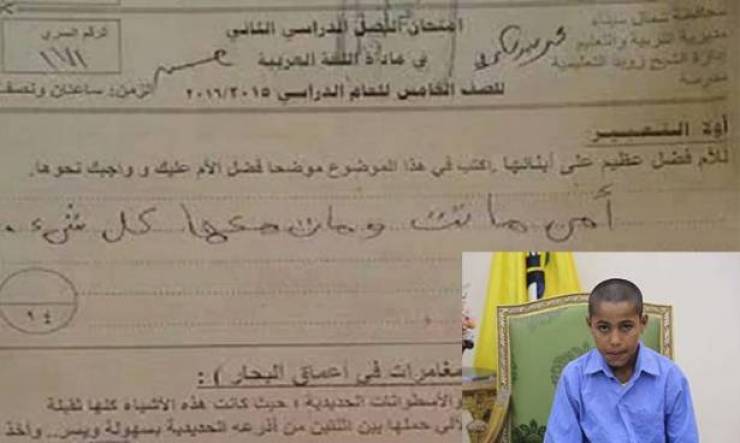 محافظة شمال سيناء
مديرية التربية والتعليم
إدارة الشيخ زويد التعليمية
مدرسة
امتحان الفصل الدراسي الثاني
في مادة اللغة العربية
للصف الخامس للعام الدراسي ٢٠١٦/٢٠١٥
الرقم السري
الزمن: ساعتان ونصف
أولا التعبير:
للأم فضل عظيم على أبنائها. اكتب في هذا الموضوع موضحا فضل الأم عليك وواجبك نحوها.
أمي ماتت ومات معها كل شيء.
مغامرات في أعماق البحار):
والأسطوانات الحديدية، حيث كانت هذه الأشياء كلها ثقيلة
حملها بين اثنتين من أذرعه الحديدية بسهولة ويسر.. وأخذ